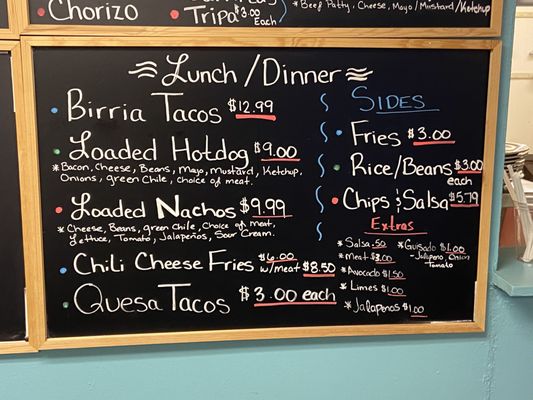 Chorizo
Tripa $3.00 Each
*Beef Patty, Cheese, Mayo/Mustard/Ketchup
Lunch/Dinner
Birria Tacos $12.99
Loaded Hotdog $9.00
*Bacon, Cheese, Beans, Mayo, Mustard, Ketchup,
Onions, green Chile, choice of meat.
Loaded Nachos $9.99
*Cheese, Beans, green Chile, Choice of meat,
Lettuce, Tomato, Jalapeños, Sour Cream.
Chili Cheese Fries $6.00
w/meat $8.50
QuesaTacos $3.00 each
Sides
Fries $3.00
Rice/Beans $3.00
each
Chips & Salsa $5.79
Extras
*Salsa .50
*Meat $3.00
*Avocado $1.50
*Limes $1.00
*Jalapeños $1.00
*Guisado $1.00
-Jalapeno, Onion
Tomato